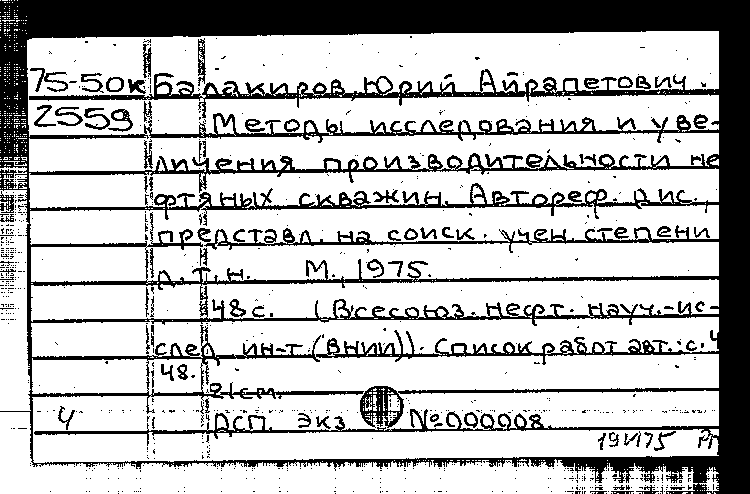 75-5.0к Балакиров, Юрий Айрапетович.
2559 Методы исследования и уве-
личения производительности не
фтяных скважин. Автореф. дис.,
представл. на соиск. учен. степени
д. т. н. М., 1975.
48 с. (Всесоюз. нефт. науч.-ис-
след. ин-т (ВНИИ)). Список работ авт.: с. 4
48.
21 см.
4 ДСП. Экз №000008.
19 VI 75 РП